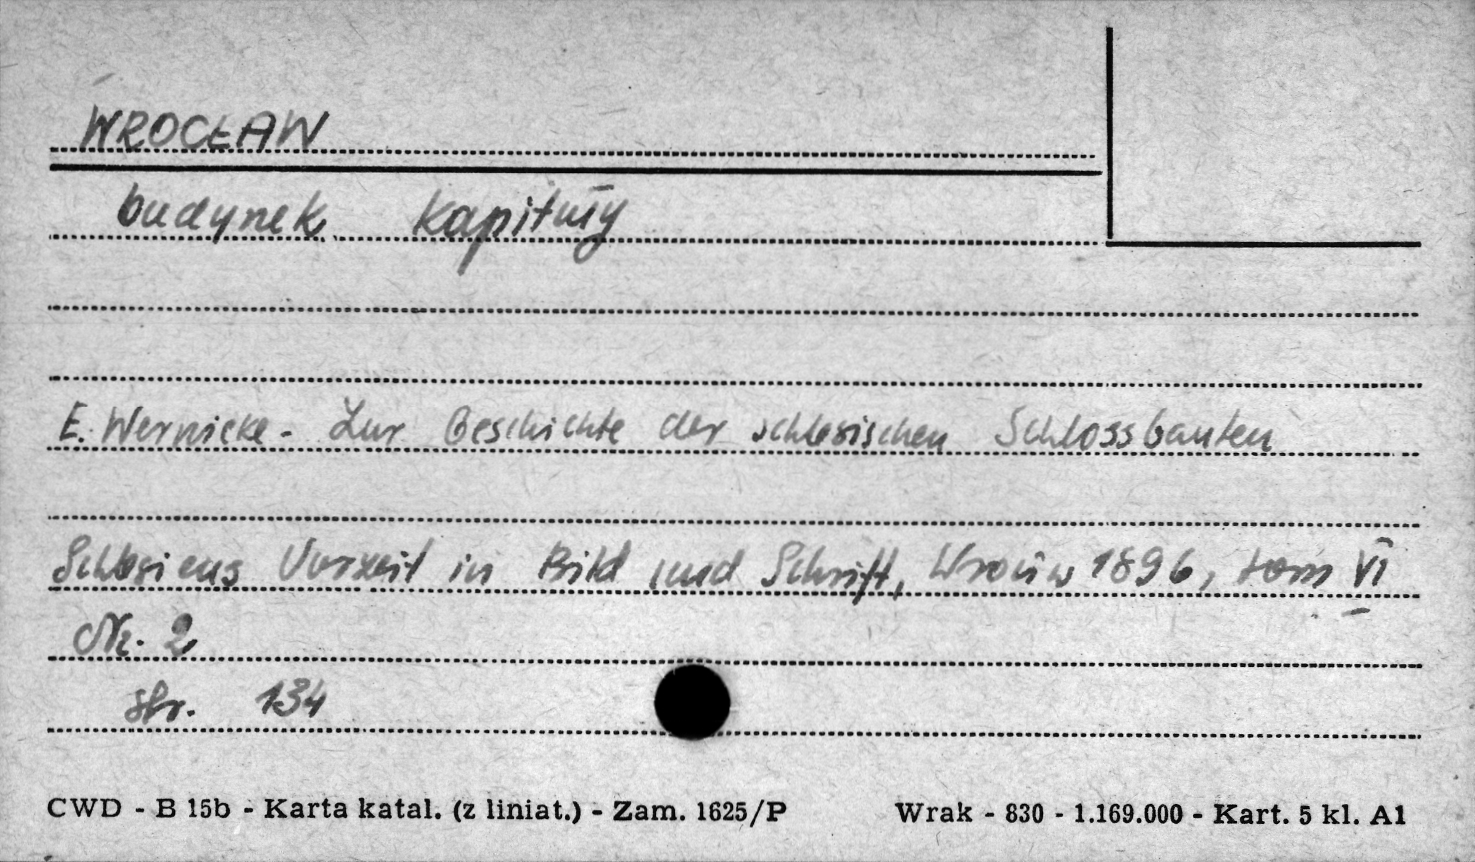 WROCŁAW
budynek kapituły
E. Wernicke - Zur Geschichte der schlesischen Schlossbauten
Schlesiens Vorzeit in Bild und Schrift, Wrocław 1896, tom VI
Nr. 2
str. 134
CWD - B 15b - Karta katal. (z liniat.) - Zam. 1625/P Wrak - 830 - 1.169.000 - Kart. 5 kl. A1